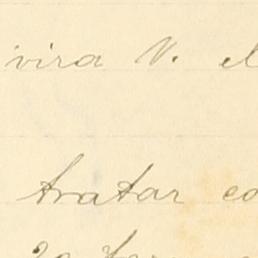 ivira V. el
tratar co